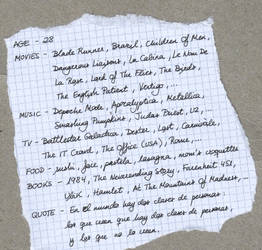 AGE - 28
MOVIES - Blade Runner, Brazil, Children of Men,
Dangerous Liaisons, La Cabina, Le Nom De
La Rose, Lord Of The Flies, The Birds,
The English Patient, Vertigo, ...
MUSIC - Depeche Mode, Apocalyptica, Metallica,
Smashing Pumpkins, Judas Priest, U2, ...
TV - Battlestar Galactica, Dexter, Lost, Carnivàle,
The IT Crowd, The Office (USA), Rome, ...
FOOD - sushi, joce, pastela, lasagna, mom's croquettes
BOOKS - 1984, The Neverending Story, Farenheit 451,
Ubik, Hamlet, At The Mountains of Madness, ...
QUOTE - En el mundo hay dos clases de personas:
los que creen que hay dos clases de personas,
y los que no lo creen.